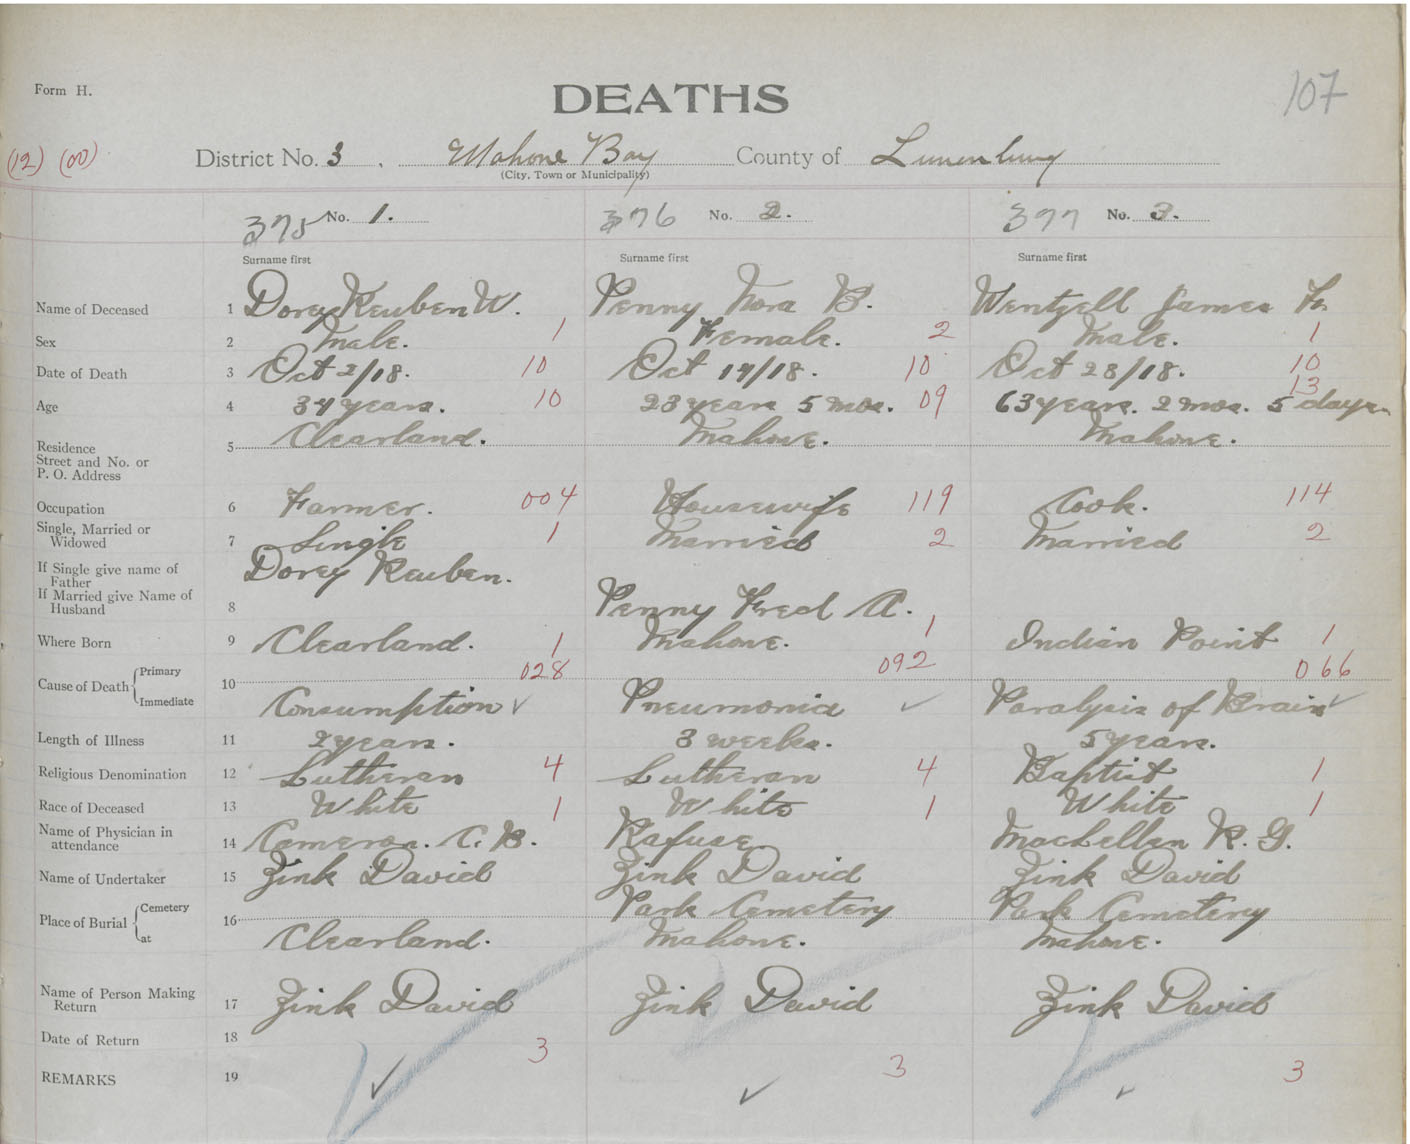 Form H.
DEATHS
107
(12) (00)
District No. 3, Mahone Bay County of Lunenburg
(City, Town or Municipality)
375 No. 1. 376 No. 2. 377 No. 3.
Surname first Surname first Surname first
Name of Deceased 1 Dorey Reuben W. Penny Nora B. Wentzell James
Sex 2 Male. 1 Female. 2 Male. 1
Date of Death 3 Oct 2/18. 10 Oct 19/18. 10 Oct 28/18. 10
13
Age 4 34 years. 10 23 years 5 mos. 09 63 years. 2 mos. 5 days.
Residence
Street and No. or
P. O. Address
5 Clearland. Mahone. Mahone.
Occupation 6 Farmer. 004 Housewife 119 Cook. 114
Single, Married or
Widowed
7 Single 1 Married 2 Married 2
If Single give name of
Father
Dorey Reuben.
If Married give Name of
Husband
8 Penny Fred A.
Where Born 9 Clearland. 1 Mahone. 1 Indian Point 1
Cause of Death { Primary 10 028 092 066
Immediate Consumption ✓ Pneumonia ✓ Paralysis of Brain ✓
Length of Illness 11 2 years. 3 weeks. 5 years.
Religious Denomination 12 Lutheran 4 Lutheran 4 Baptist 1
Race of Deceased 13 White 1 White 1 White 1
Name of Physician in
attendance
14 Cameron. C. B. Rafuse MacLellan R. G.
Name of Undertaker 15 Zink David Zink David Zink David
Place of Burial { Cemetery 16 Park Cemetery Park Cemetery
at Clearland. Mahone. Mahone.
Name of Person Making
Return
17 Zink David Zink David Zink David
Date of Return 18
3 3 3
REMARKS 19 ✓ ✓ ✓